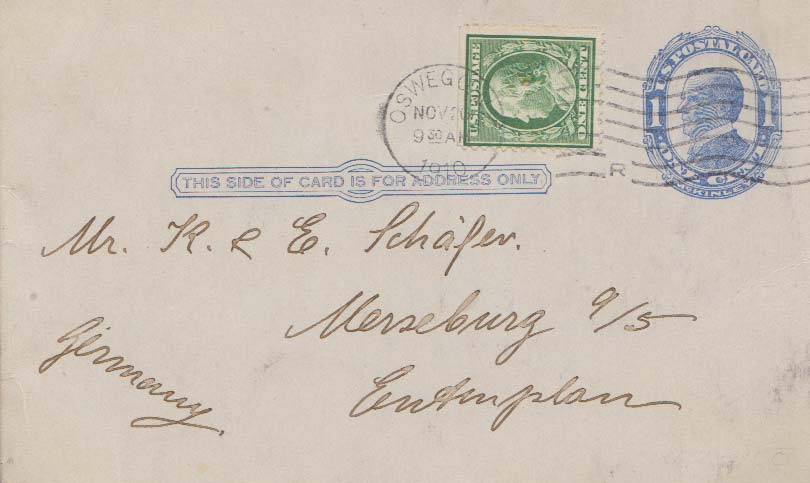 OSWEGO
NOV 20
9 30 A
1910
R
U.S. POSTAGE
U.S. POSTAL CARD
1 1
ONE CENT
McKINLEY
THIS SIDE OF CARD IS FOR ADDRESS ONLY
Mr. K. & E. Schäfer.
Merseburg a/S
Entenplan
Germany.